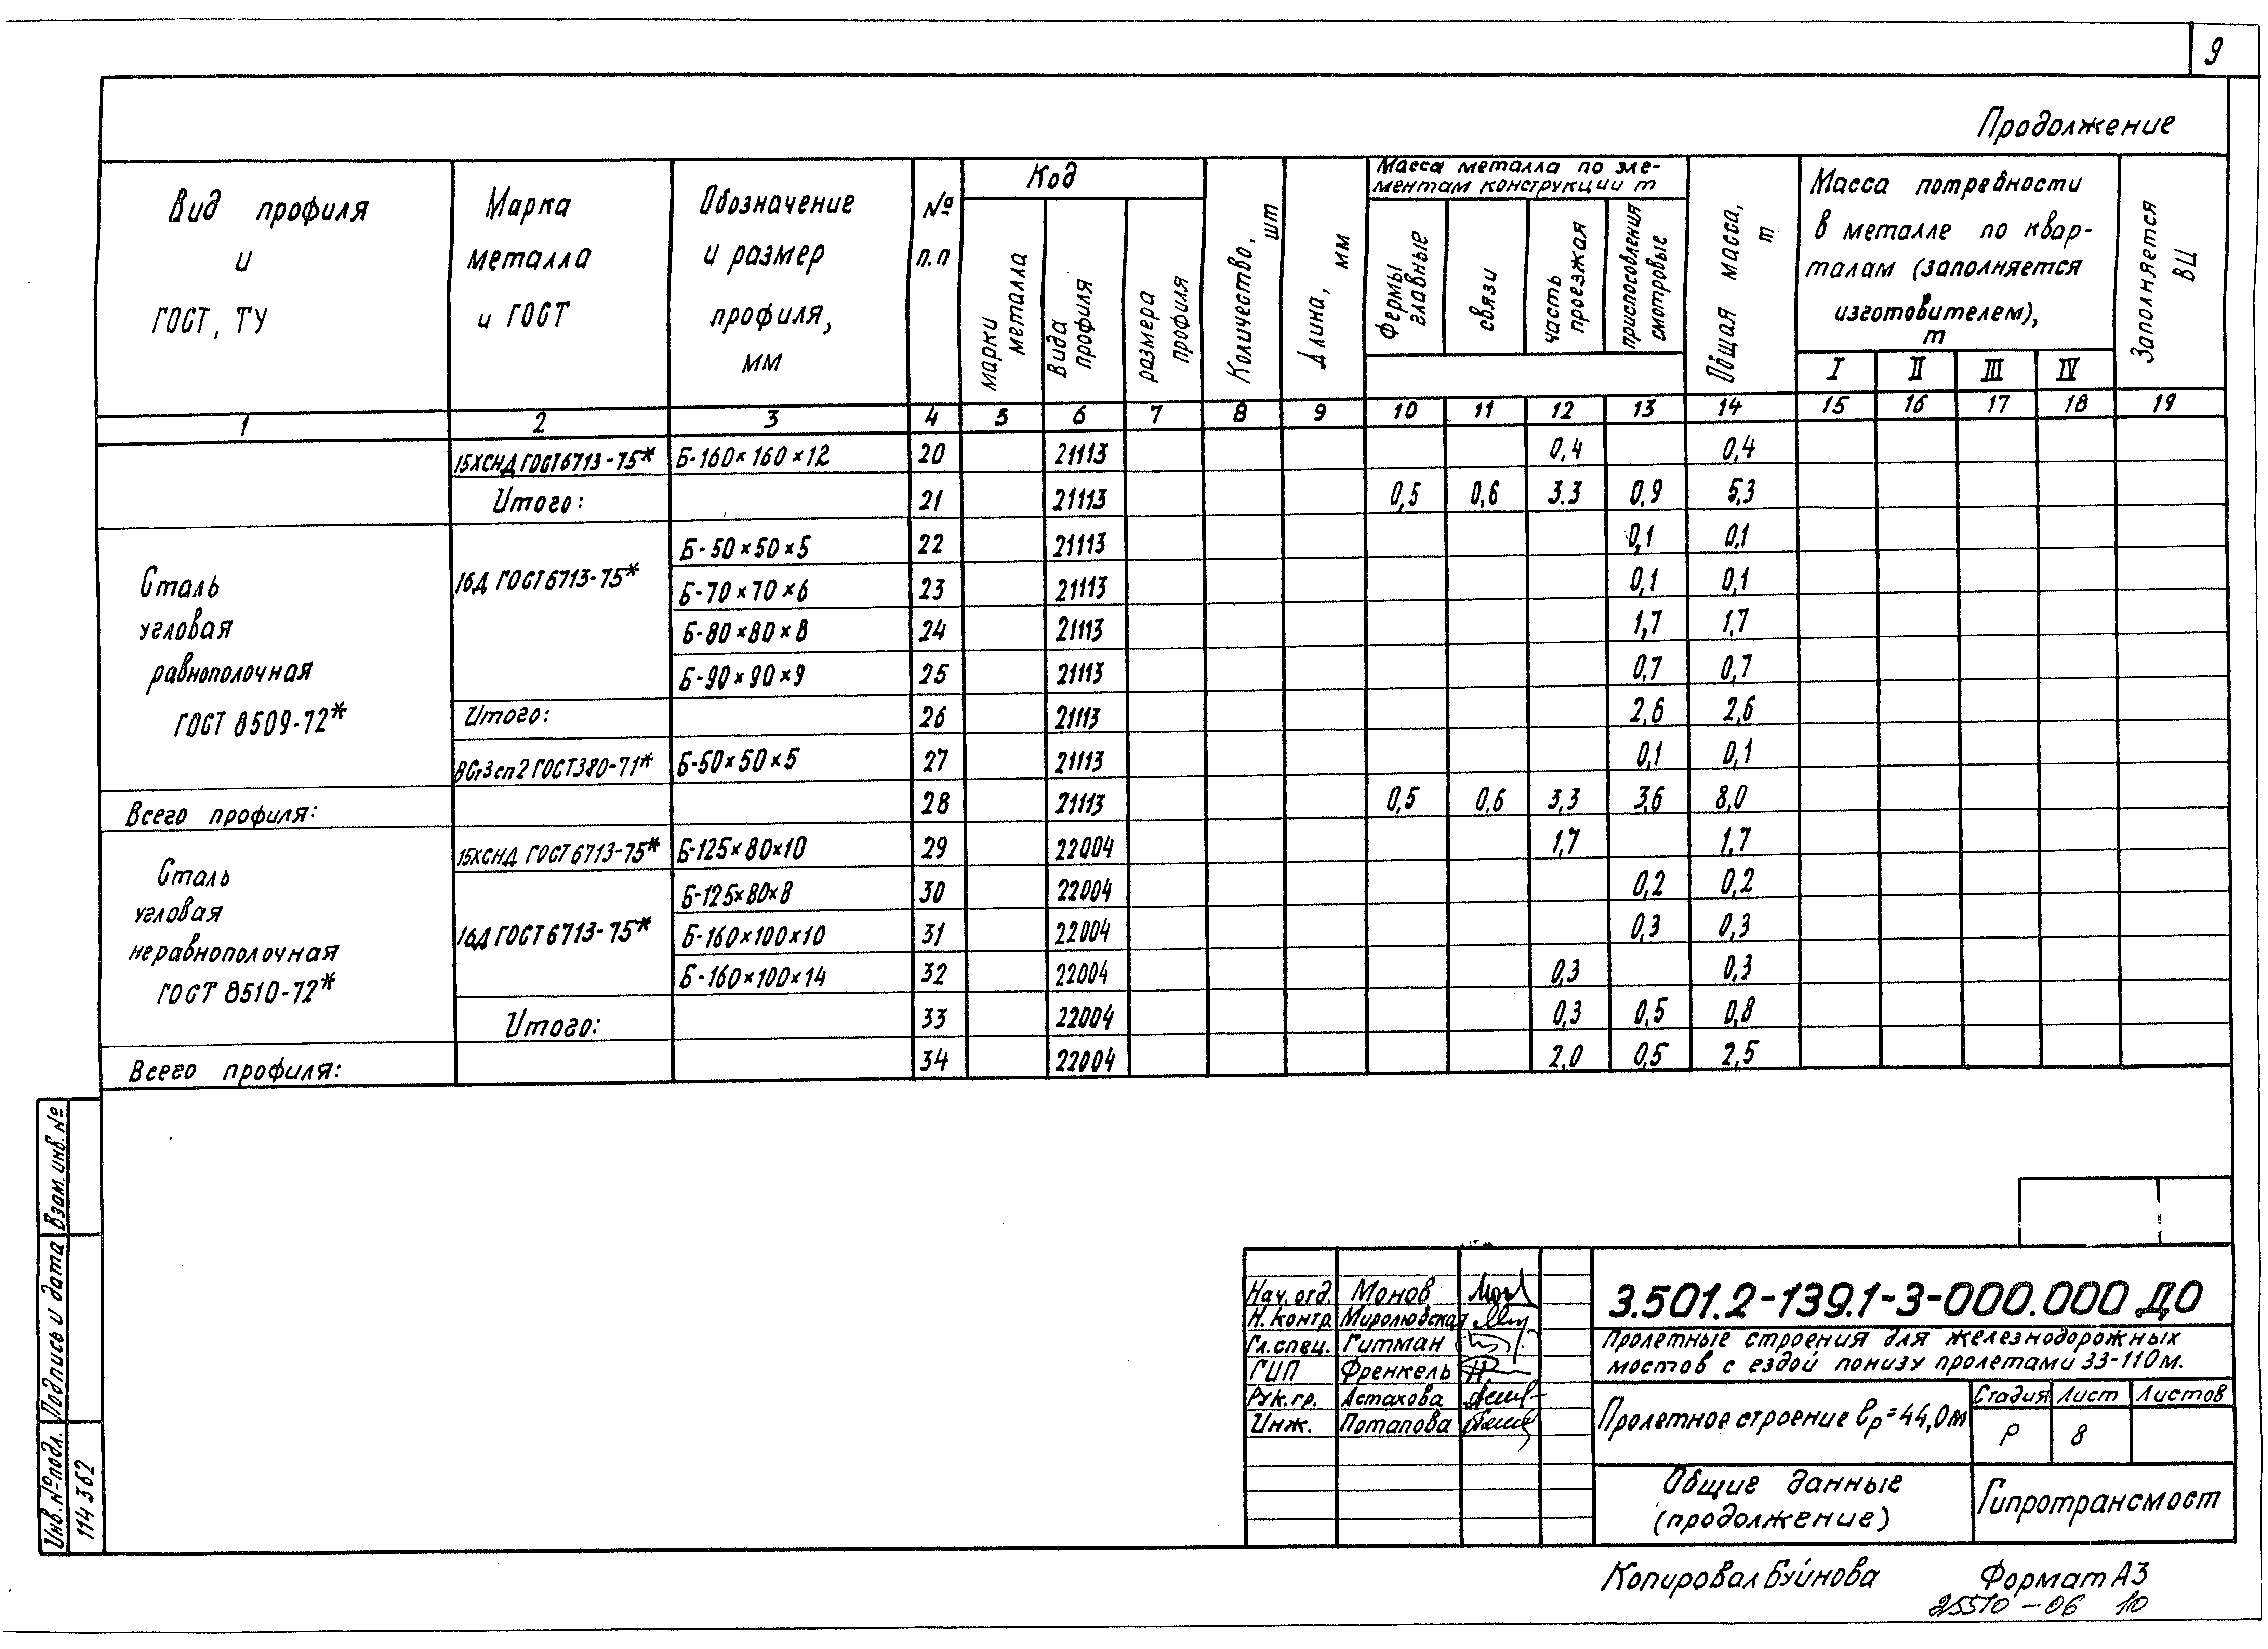 9
Продолжение
Вид профиля и ГОСТ, ТУ
Марка металла и ГОСТ
Обозначение и размер профиля, мм
№ п.п
Код
марки металла
вида профиля
размера профиля
Количество, шт
Длина, мм
Масса металла по эле-
ментам конструкции т
Фермы главные
связи
часть проезжая
приспособления смотровые
Общая масса, т
Масса потребности
в металле по квар-
талам (заполняется
изготовителем),
т
I II III IV
Заполняется ВЦ
1 2 3 4 5 6 7 8 9 10 11 12 13 14 15 16 17 18 19
15ХСНД ГОСТ6713-75* Б-160×160×12 20 21113 0,4 0,4
Итого: 21 21113 0,5 0,6 3.3 0,9 5,3
Сталь
угловая
равнополочная
ГОСТ 8509-72*
16Д ГОСТ6713-75*
Б-50×50×5 22 21113 0,1 0,1
Б-70×70×6 23 21113 0,1 0,1
Б-80×80×8 24 21113 1,7 1,7
Б-90×90×9 25 21113 0,7 0,7
Итого: 26 21113 2,6 2,6
ВСт3сп2 ГОСТ380-71* Б-50×50×5 27 21113 0,1 0,1
Всего профиля: 28 21113 0,5 0,6 3,3 3,6 8,0
Сталь
угловая
неравнополочная
ГОСТ 8510-72*
15ХСНД ГОСТ6713-75* Б-125×80×10 29 22004 1,7 1,7
16Д ГОСТ6713-75*
Б-125×80×8 30 22004 0,2 0,2
Б-160×100×10 31 22004 0,3 0,3
Б-160×100×14 32 22004 0,3 0,3
Итого: 33 22004 0,3 0,5 0,8
Всего профиля: 34 22004 2,0 0,5 2,5
Взам. инв. №
Подпись и дата
Инв. № подл.
114362
Нач. отд. Монов
Н. контр. Миролюбская
Гл. спец. Гитман
ГИП Френкель
Рук. гр. Астахова
Инж. Потапова
3.501.2-139.1-3-000.000 ДО
Пролетные строения для железнодорожных
мостов с ездой понизу пролетами 33-110 м.
Пролетное строение ℓр=44,0м
Стадия Лист Листов
Р 8
Общие данные
(продолжение)
Гипротрансмост
Копировал Буйнова
Формат А3
25510-06 10